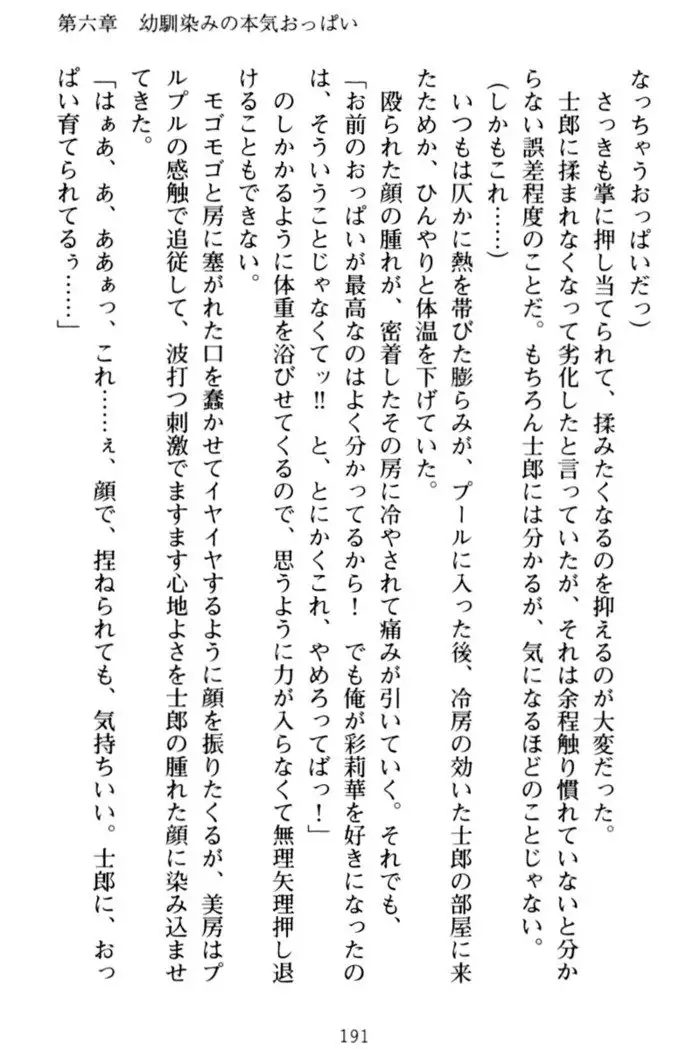 第六章　幼馴染みの本気おっぱい
なっちゃうおっぱいだっ)
　さっきも掌に押し当てられて、揉みたくなるのを抑えるのが大変だった。
　士郎に揉まれなくなって劣化したと言っていたが、それは余程触り慣れていないと分か
らない誤差程度のことだ。もちろん士郎には分かるが、気になるほどのことじゃない。
(しかもこれ……)
　いつもは仄かに熱を帯びた膨らみが、プールに入った後、冷房の効いた士郎の部屋に来
たためか、ひんやりと体温を下げていた。
　殴られた顔の腫れが、密着したその房に冷やされて痛みが引いていく。それでも、
「お前のおっぱいが最高なのはよく分かってるから！　でも俺が彩莉華を好きになったの
は、そういうことじゃなくてッ!!　と、とにかくこれ、やめろってばっ！」
　のしかかるように体重を浴びせてくるので、思うように力が入らなくて無理矢理押し退
けることもできない。
　モゴモゴと房に塞がれた口を蠢かせてイヤイヤするように顔を振りたくるが、美房はプ
ルプルの感触で追従して、波打つ刺激でますます心地よさを士郎の腫れた顔に染み込ませ
てきた。
「はぁあ、あ、ああぁっ、これ……ぇ、顔で、捏ねられても、気持ちいい。士郎に、おっ
ぱい育てられてるぅ……」
191